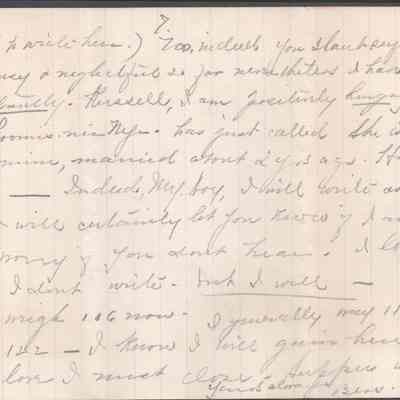 7.
to write here.) No, indeed you
& neglectful so far nevertheless I have
Russell, I am positively
has just called She is
mine, married about 2 yrs ago.
— Indeed, My boy, I will write
will certainly let you know if I
worry if you dont hear. I
I dont write. but I will —
weigh 106 now. I generally
122 — I know I will gain here
love I must close. Supper
Yours alone
Bess.